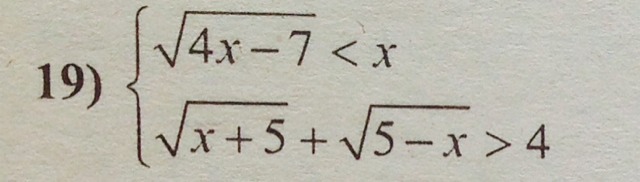 19) { √(4x−7) < x
√(x+5) + √(5−x) > 4